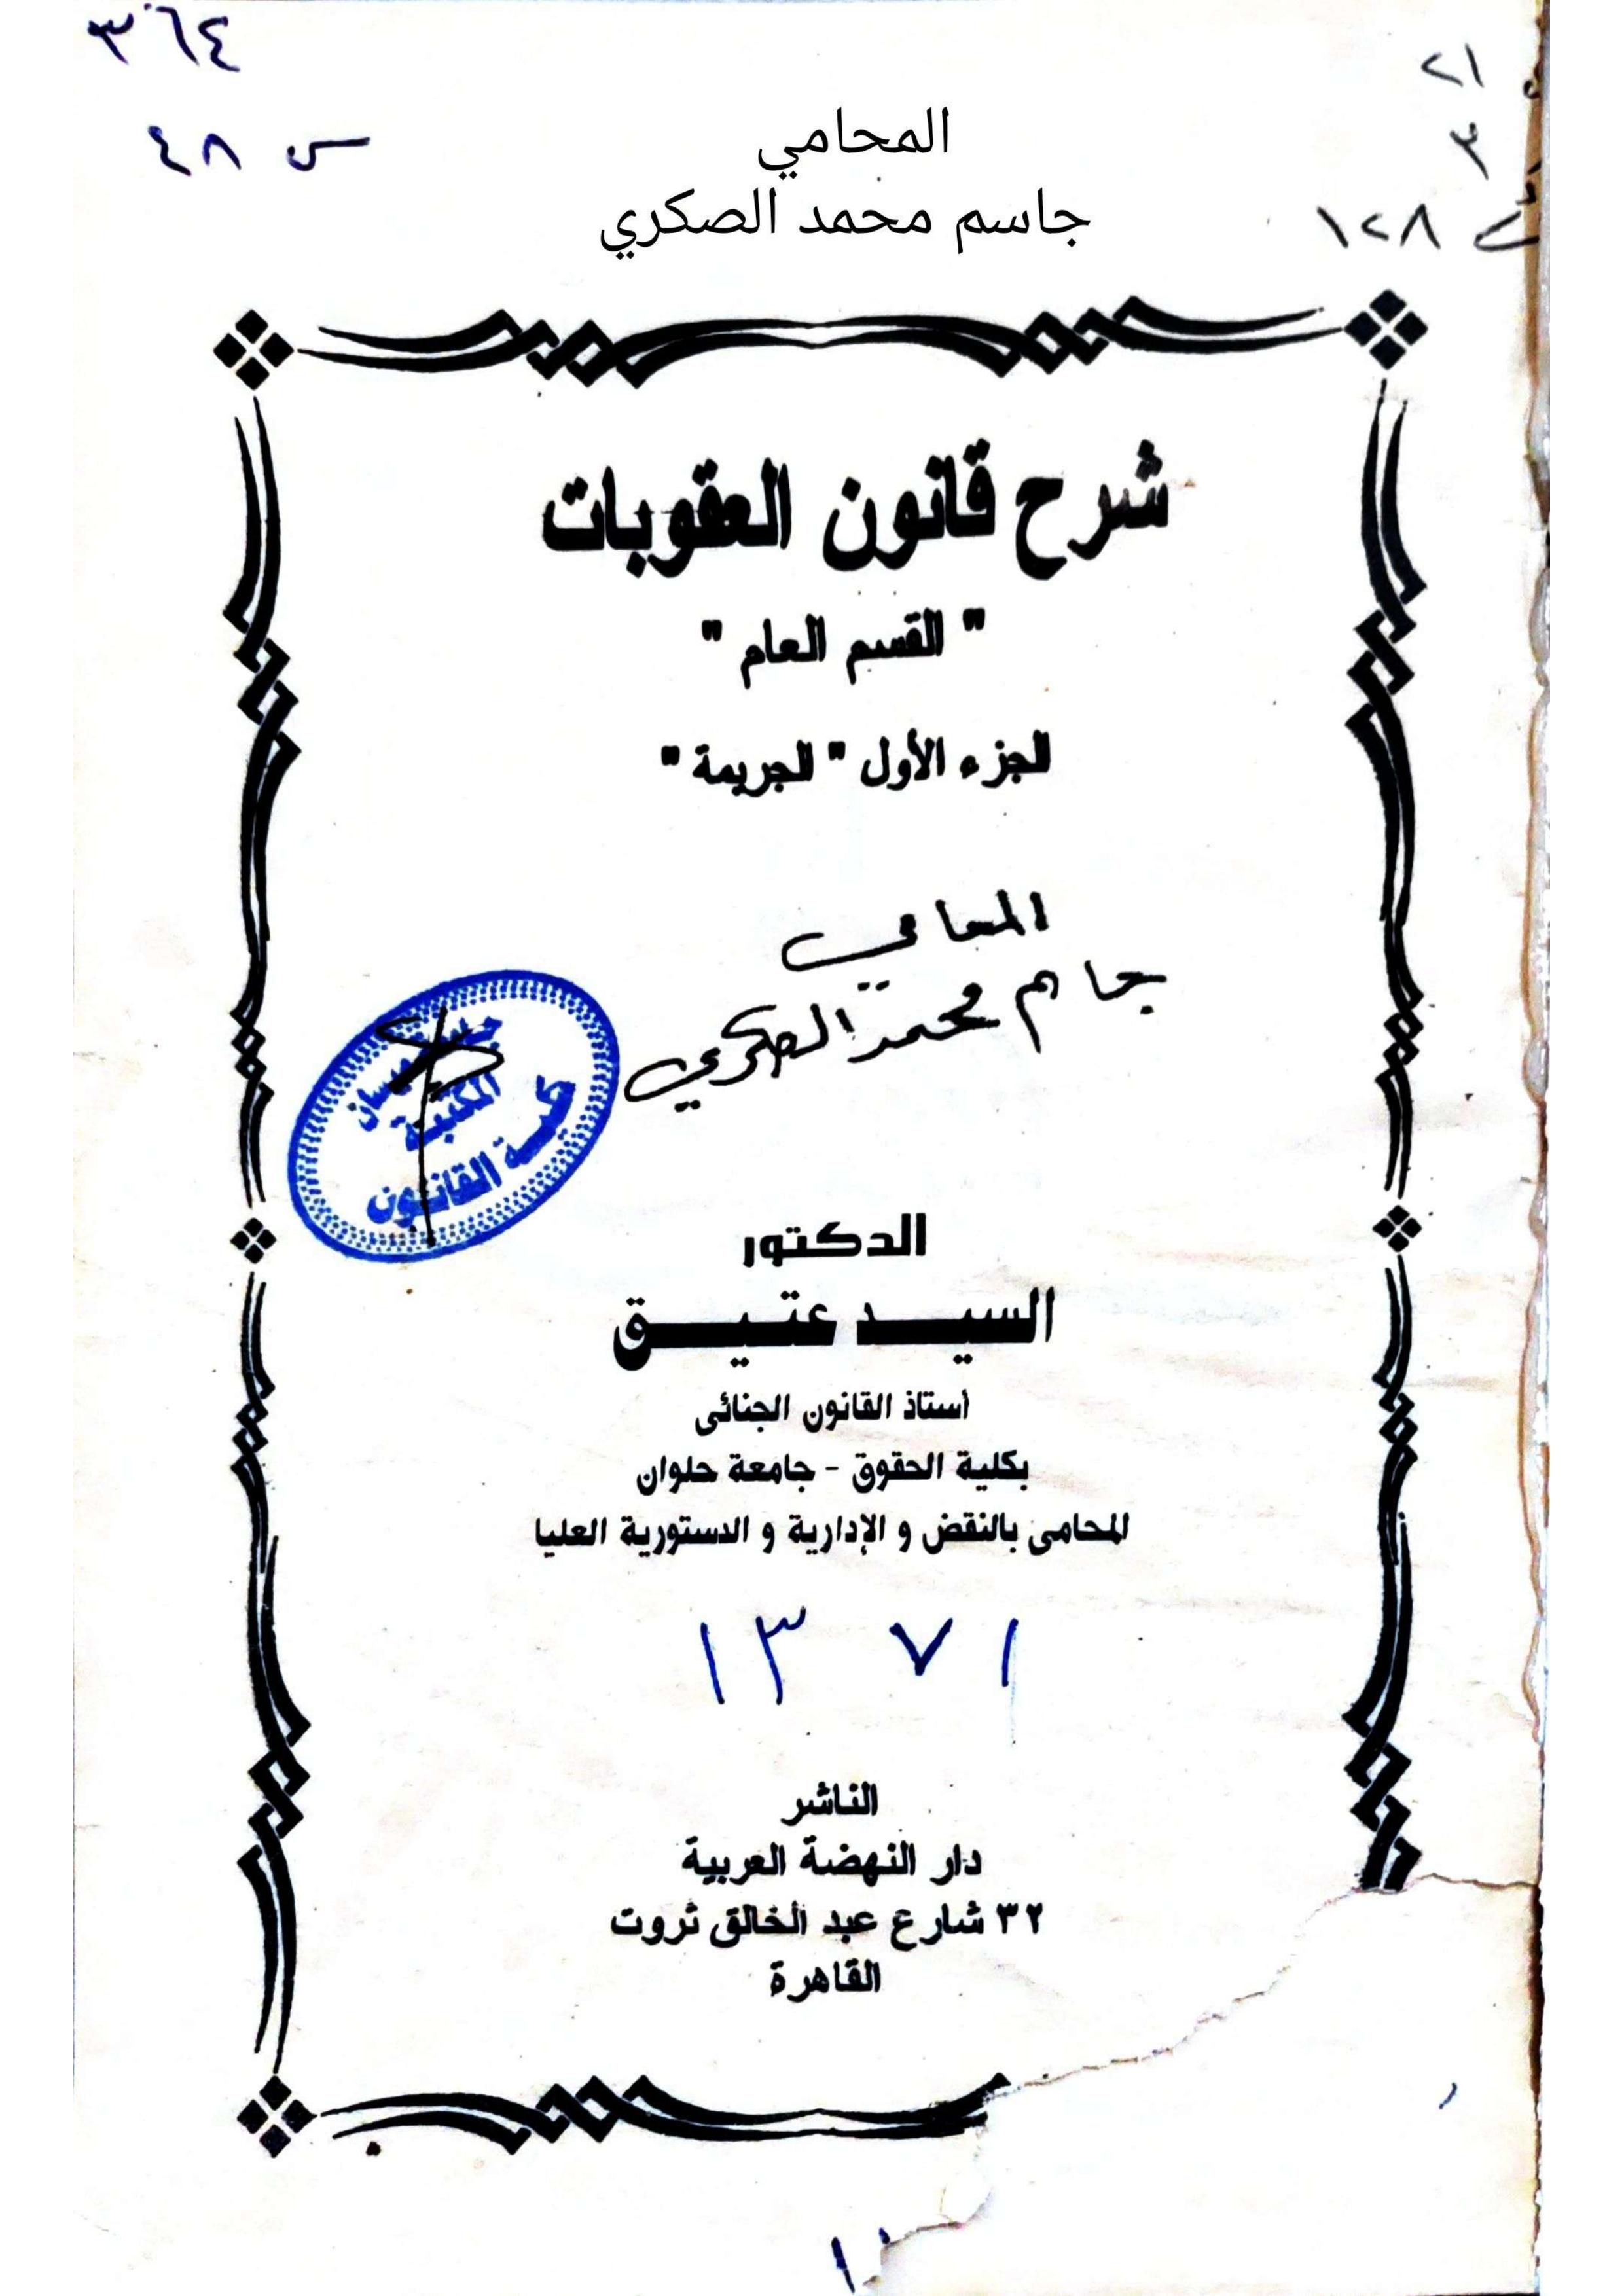 ٣٦٤
س ٤٨
٢١
٣
١٢٨
المحامي
جاسم محمد الصكري
شرح قانون العقوبات
" القسم العام "
الجزء الأول " الجريمة "
المحامي
جاسم محمد الصكري
ميسان
المكتبة
كلية القانون
الدكتور
السيد عتيق
أستاذ القانون الجنائى
بكلية الحقوق - جامعة حلوان
المحامى بالنقض و الإدارية و الدستورية العليا
١٣ ٧١
الناشر
دار النهضة العربية
٣٢ شارع عبد الخالق ثروت
القاهرة